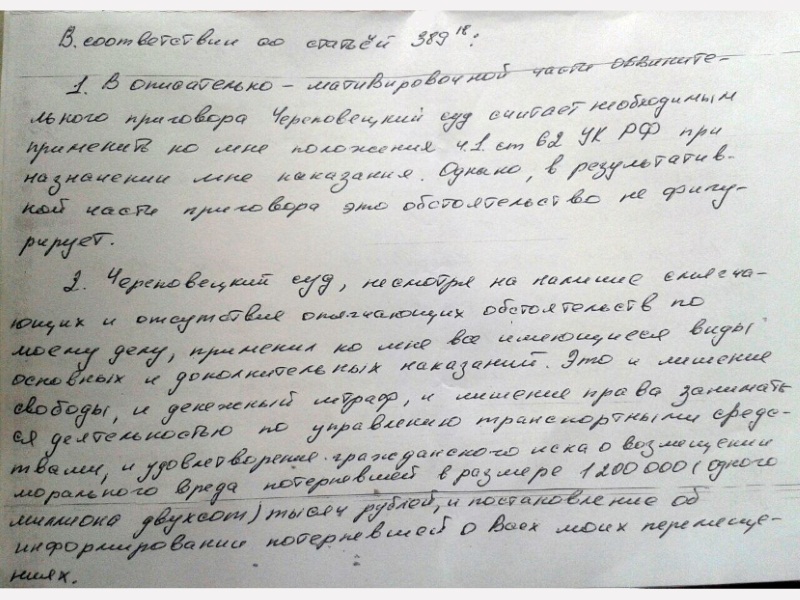 В соответствии со статьёй 389¹⁸:
1. В описательно – мативировочной части обвините-
льного приговора Череповецкий суд считает необходимым
применить ко мне положения ч.1 ст 62 УК РФ при
назначении мне наказания. Однако, в результатив-
ной части приговора это обстоятельство не фигу-
рирует.
2. Череповецкий суд, несмотря на наличие смягча-
ющих и отсутствие отягчающих обстоятельств по
моему делу, применил ко мне все имеющиеся виды
основных и дополнительных наказаний. Это и лишение
свободы, и денежный штраф, и лишение права занимать
ся деятельностью по управлению транспортными средс-
твами, и удовлетворение гражданского иска о возмещении
морального вреда потерпевшей в размере 1 200 000 (одного
миллиона двухсот) тысяч рублей, и постановление об
информировании потерпевшей о всех моих перемеще-
ниях.